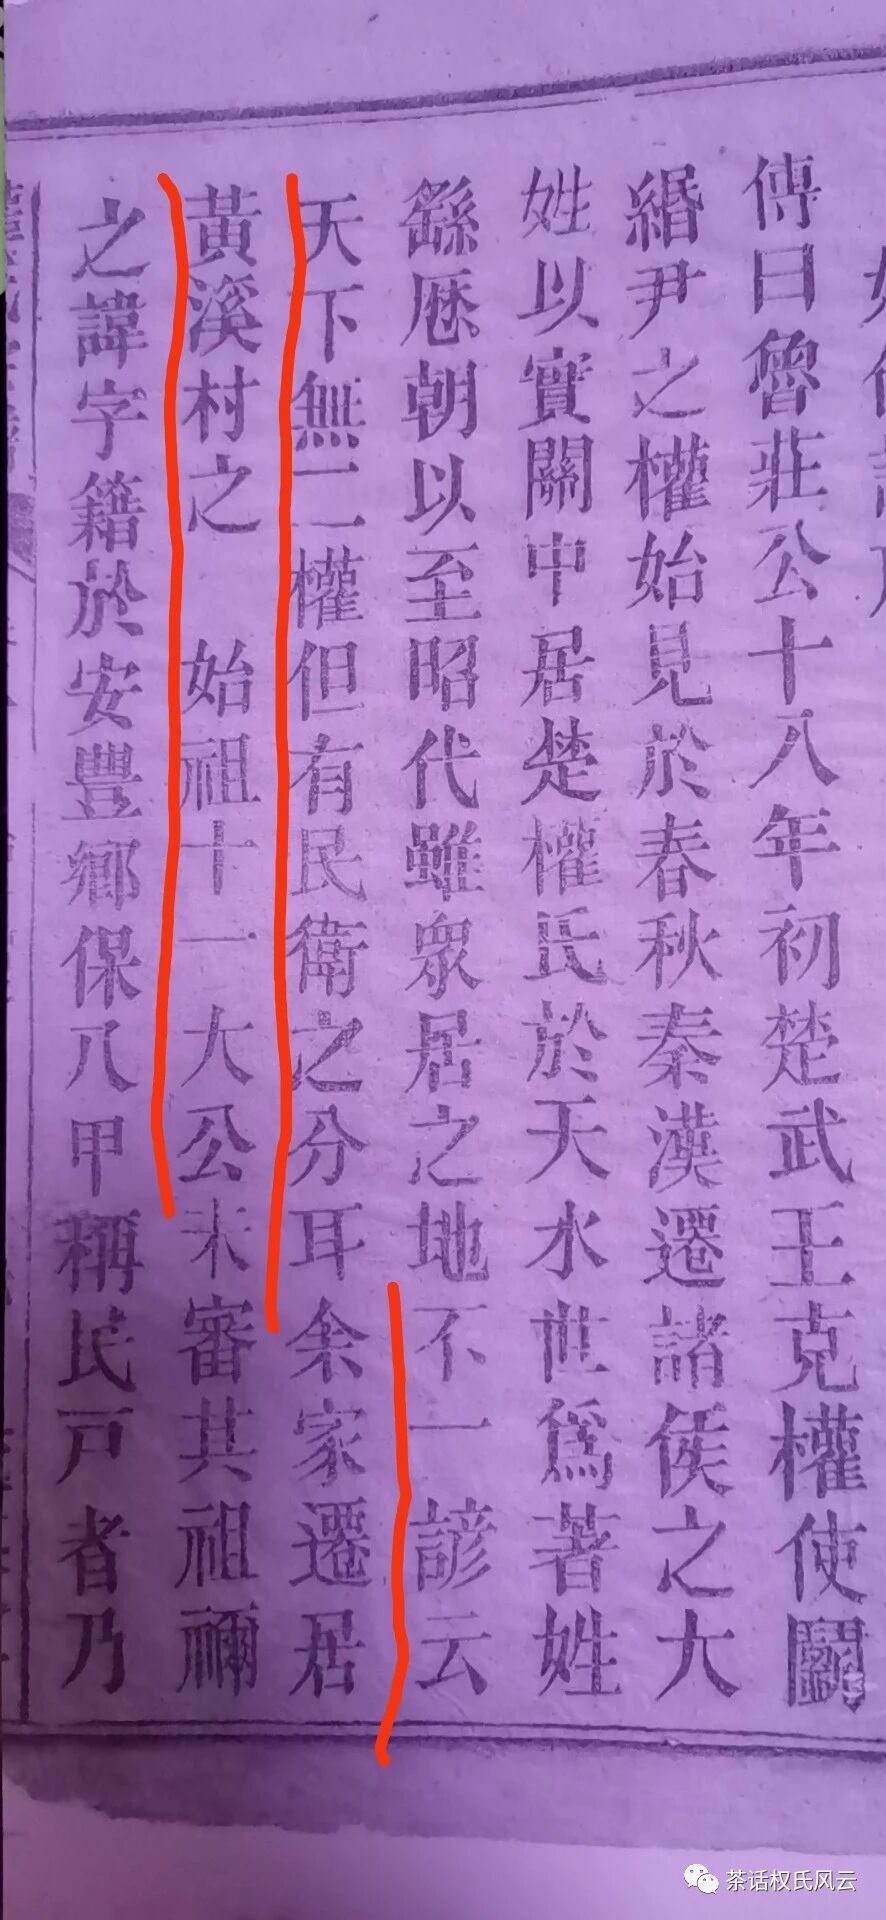 傳曰魯莊公十八年初楚武王克權使鬭
緡尹之權始見於春秋秦漢遷諸侯之大
姓以實關中居楚權氏於天水世爲著姓
繇厯朝以至昭代雖眾居之地不一諺云
天下無二權但有民衛之分耳余家遷居
黃溪村之 始祖十一大公未審其祖禰
之諱字籍於安豐鄉保八甲稱民戸者乃
茶话权氏风云